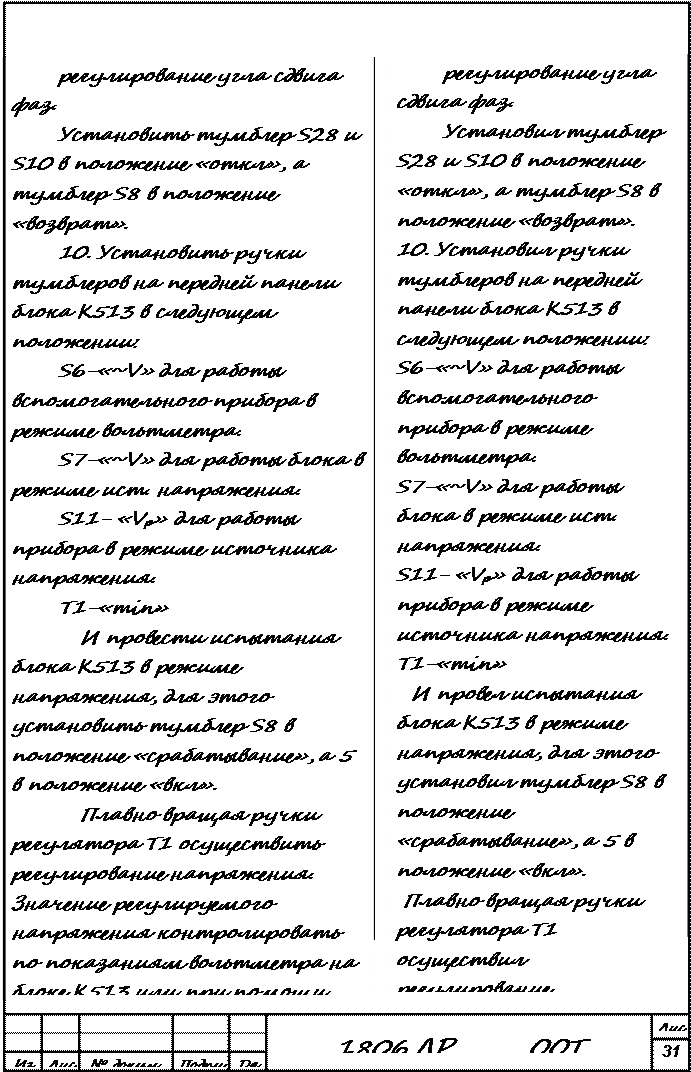 регулирование угла сдвига
фаз.
Установить тумблер S28 и
S10 в положение «откл», а
тумблер S8 в положение
«возврат».
10. Установить ручки
тумблеров на передней панели
блока К513 в следующем
положении:
S6–«~V» для работы
вспомогательного прибора в
режиме вольтметра.
S7–«~V» для работы блока в
режиме ист. напряжения.
S11– «Vр» для работы
прибора в режиме источника
напряжения.
Т1–«min»
И провести испытания
блока К513 в режиме
напряжения, для этого
установить тумблер S8 в
положение «срабатывание», а 5
в положение «вкл».
Плавно вращая ручки
регулятора Т1 осуществить
регулирование напряжения.
Значение регулируемого
напряжения контролировать
по показаниям вольтметра на
блоке К513 или при помощи
регулирование угла
сдвига фаз.
Установил тумблер
S28 и S10 в положение
«откл», а тумблер S8 в
положение «возврат».
10. Установил ручки
тумблеров на передней
панели блока К513 в
следующем положении:
S6–«~V» для работы
вспомогательного
прибора в режиме
вольтметра.
S7–«~V» для работы
блока в режиме ист.
напряжения.
S11– «Vр» для работы
прибора в режиме
источника напряжения.
Т1–«min»
И провел испытания
блока К513 в режиме
напряжения, для этого
установил тумблер S8 в
положение
«срабатывание», а 5 в
положение «вкл».
Плавно вращая ручки
регулятора Т1
осуществил
регулирование
Лис
31
Из Лис № докум. Подпи Да